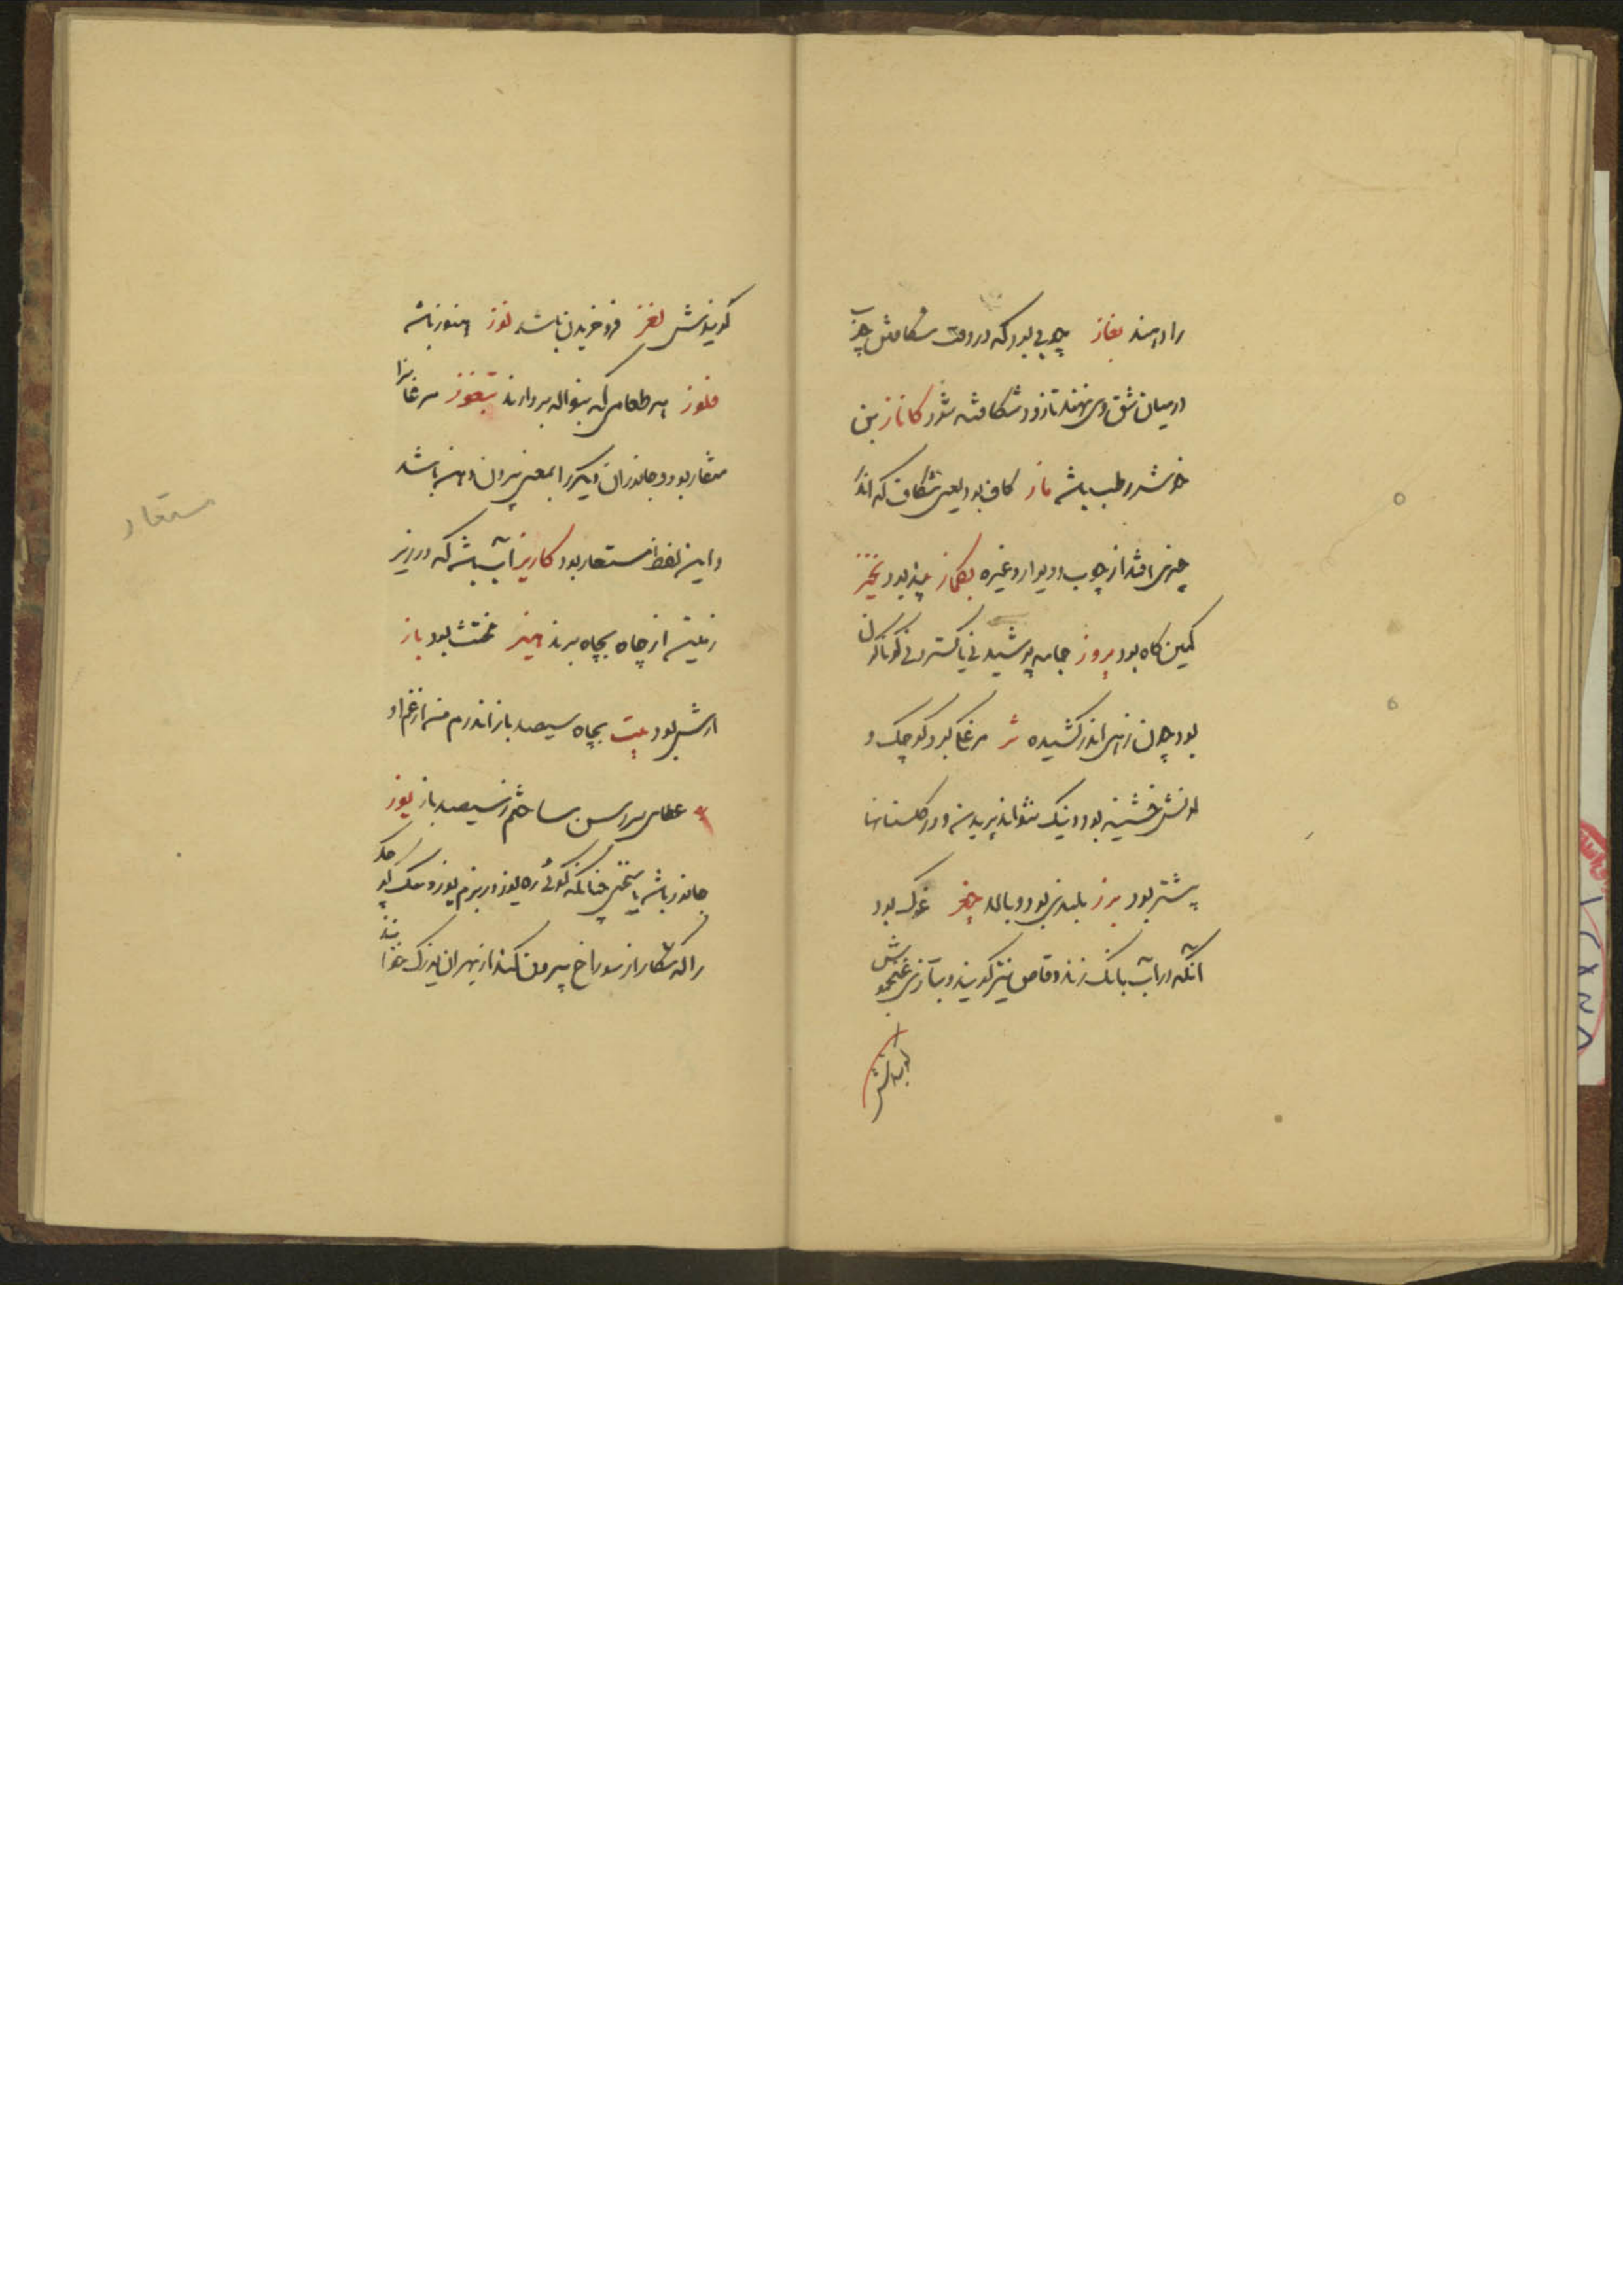 را دهند بغاز چوبی بود که در وقت شکافتن چوب
در میان شق وی نهند تا زود شکافته شود کاناز بن
خوشه رطب باشد ماز کاف بود یعنی شکاف که اندر
چیزی افتد از چوب و دیوار و غیره بکماز نبید بود نخیز
کمین کاه بود پروز جامه پوشیدنی یا گستردنی گوناگون
بود چون زهی اندر کشیده مرغکی بود کوچک و
لونش خشینه بود و نیک نتواند پریدن و در گلستانها
پیشتر بود برز بلندی بود و بالا چغز غوک بود
آنکه در آب بانک زند و قاص نیز گویند و بتازی غنجموش
گویندش
گویندش لغز فرو خزیدن باشد نوز هنوز باشد
فلوز هر طعامی که بنواله بردارند بتفوز مرغانرا
منقار بود و جانوران دیگر را بمعنی پیرون دهن باشد
و این لفظ مستعار بود کاریز آب باشد که در زیر
زمین از چاه بچاه برند هیز مخنث بود باز
ارش بود بیت بچاه سیصد باز اندرم من از غم او
عطای میر رسن ساختم ز سیصد باز یوز
جانور باشد یا جستن چنانکه گوئی ره یوز و رزم یوز و سک کوچک
را که شکار از سوراخ بیرون کند از بهر آن یوزک خوانند
مستعار